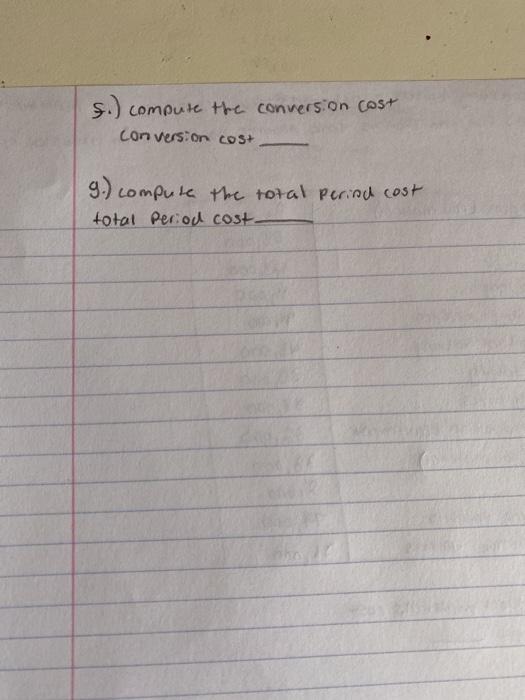 5.) compute the conversion cost
conversion cost ____
g.) compute the total period cost
total period cost ____